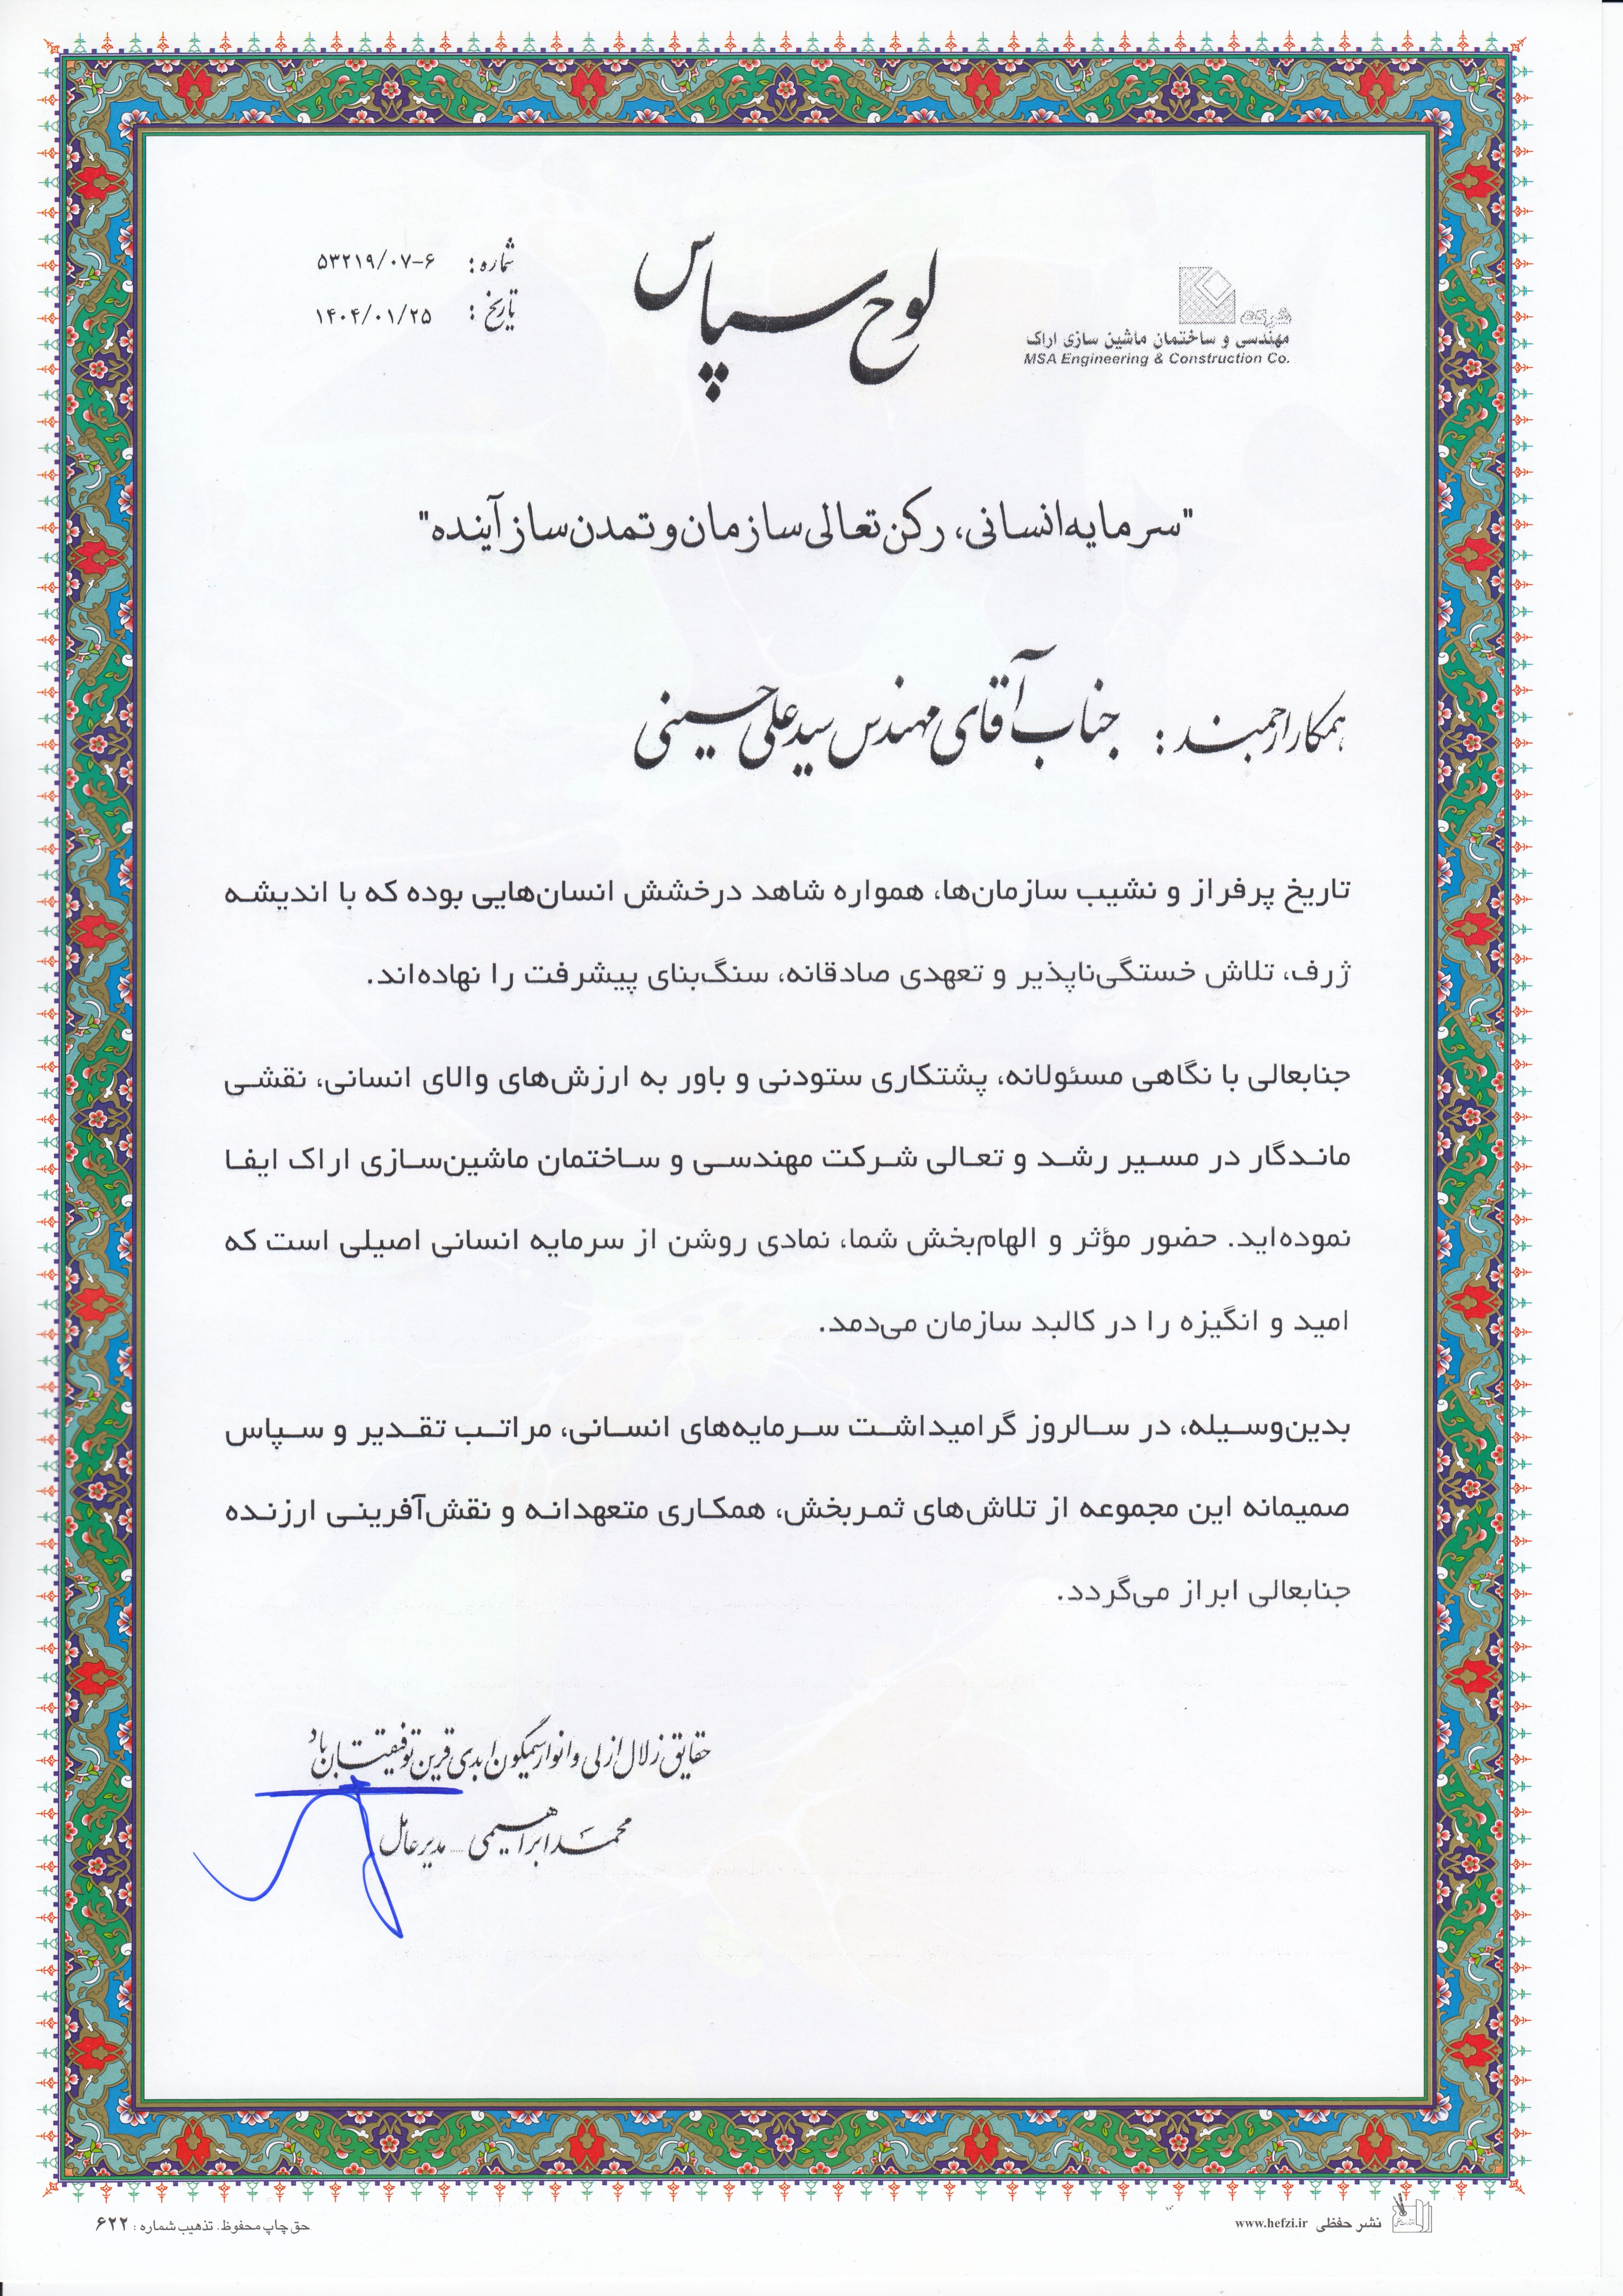 شرکت
مهندسی و ساختمان ماشین سازی اراک
MSA Engineering & Construction Co.
لوح سپاس
شماره : ۵۳۲۱۹/۰۷-۶
تاریخ : ۱۴۰۴/۰۱/۲۵
"سرمایه انسانی، رکن تعالی سازمان و تمدن ساز آینده"
همکار ارجمند : جناب آقای مهندس سید علی حسینی
تاریخ پرفراز و نشیب سازمان‌ها، همواره شاهد درخشش انسان‌هایی بوده که با اندیشه
ژرف، تلاش خستگی‌ناپذیر و تعهدی صادقانه، سنگ‌بنای پیشرفت را نهاده‌اند.
جنابعالی با نگاهی مسئولانه، پشتکاری ستودنی و باور به ارزش‌های والای انسانی، نقشی
ماندگار در مسیر رشد و تعالی شرکت مهندسی و ساختمان ماشین‌سازی اراک ایفا
نموده‌اید. حضور مؤثر و الهام‌بخش شما، نمادی روشن از سرمایه انسانی اصیلی است که
امید و انگیزه را در کالبد سازمان می‌دمد.
بدین‌وسیله، در سالروز گرامیداشت سرمایه‌های انسانی، مراتب تقدیر و سپاس
صمیمانه این مجموعه از تلاش‌های ثمربخش، همکاری متعهدانه و نقش‌آفرینی ارزنده
جنابعالی ابراز می‌گردد.
حقایق زلال ازلی و انوار سیمگون ابدی قرین توفیقتان باد
محمد ابراهیمی - مدیرعامل
نشر حفظی www.hefzi.ir
حق چاپ محفوظ. تذهیب شماره : ۶۲۲